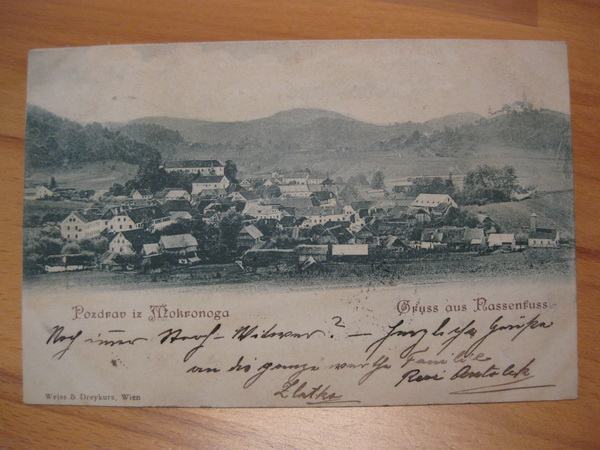 Pozdrav iz Mokronoga
Gruss aus Nassenfuss
Noch immer Stroh-Witwer? – herzliche Grüße
an die ganze werthe Familie
Zlatko
Weiss & Dreykurs, Wien